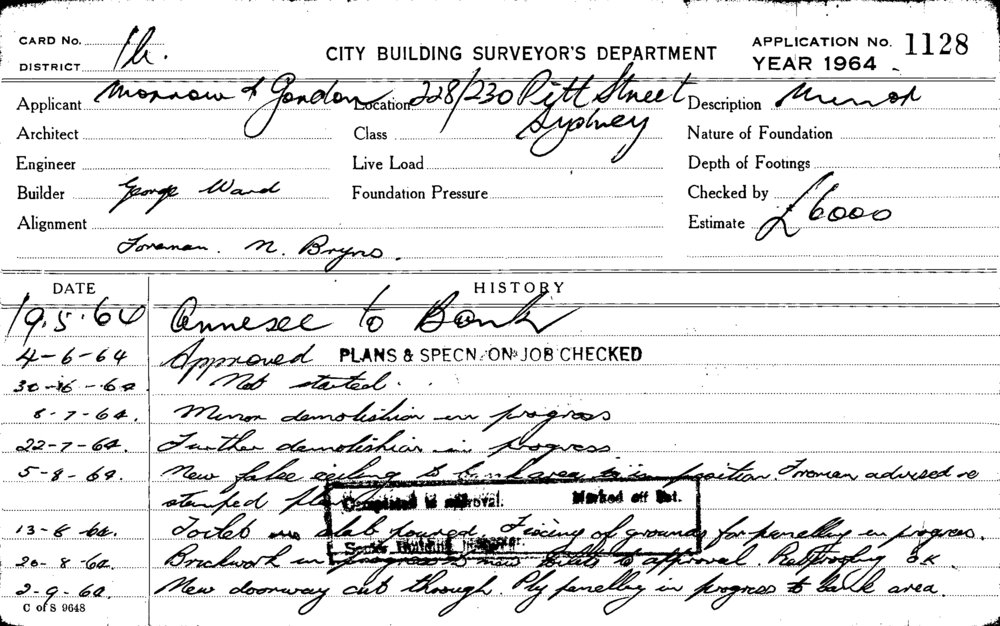 CARD No.
DISTRICT
CITY BUILDING SURVEYOR'S DEPARTMENT
APPLICATION No. 1128
YEAR 1964
Applicant Morrow & Gordon Location 228/230 Pitt Street Sydney Description Minor
Architect Class Nature of Foundation
Engineer Live Load Depth of Footings
Builder George Ward Foundation Pressure Checked by
Alignment Estimate £6000
Foreman. N. Bryns.
DATE HISTORY
19.5.64 to Bank
4-6-64 Approved PLANS & SPECN. ON JOB CHECKED
30-6-64. Not started.
8-7-64. Minor demolishion in progress
22-7-64. Further demolishion in progress
5-8-64. New false ceiling to bank area in position. Froman advised re
stamped
Completed to approval. Marked off list.
13-8-64. Toilet slab poured. Fixing of grounds for panelling in progress.
Senior Building Inspector.
20-8-64. Brickwork in progress to new toilets to approval. OK.
2-9-64. New doorway cut through. Ply panelling in progress to bank area.
C of S 9648